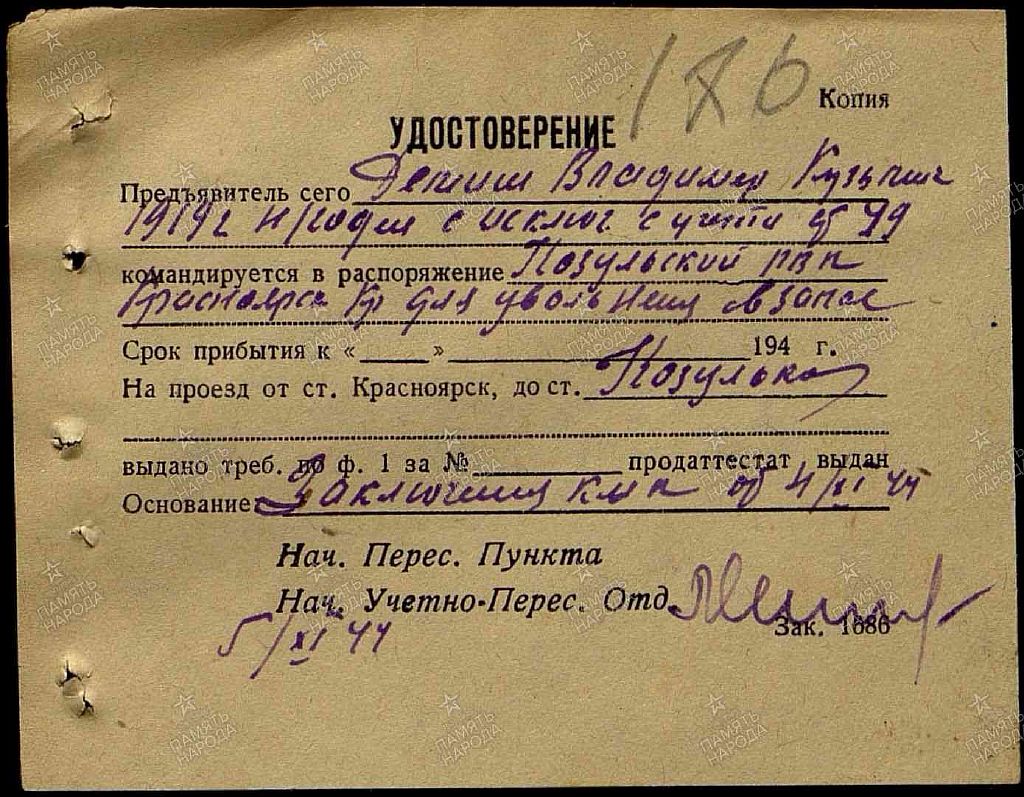 186
Копия
УДОСТОВЕРЕНИЕ
Предъявитель сего Владимир
1919г с исключ с учета об 99
командируется в распоряжение Козульский рвк
Красноярск Кр для увольнения в запас
Срок прибытия к « » 194 г.
На проезд от ст. Красноярск, до ст. Козулька
выдано треб. по ф. 1 за № продаттестат выдан
Основание Заключения от 4/XI 44
Нач. Перес. Пункта
Нач. Учетно-Перес. Отд.
5/XI 44
Зак. 1686
ПАМЯТЬ НАРОДА